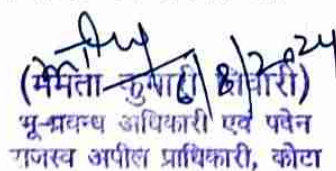 6/8/2024
(ममता कुमारी तिवारी)
भू-प्रबन्ध अधिकारी एवं पदेन
राजस्व अपील प्राधिकारी, कोटा